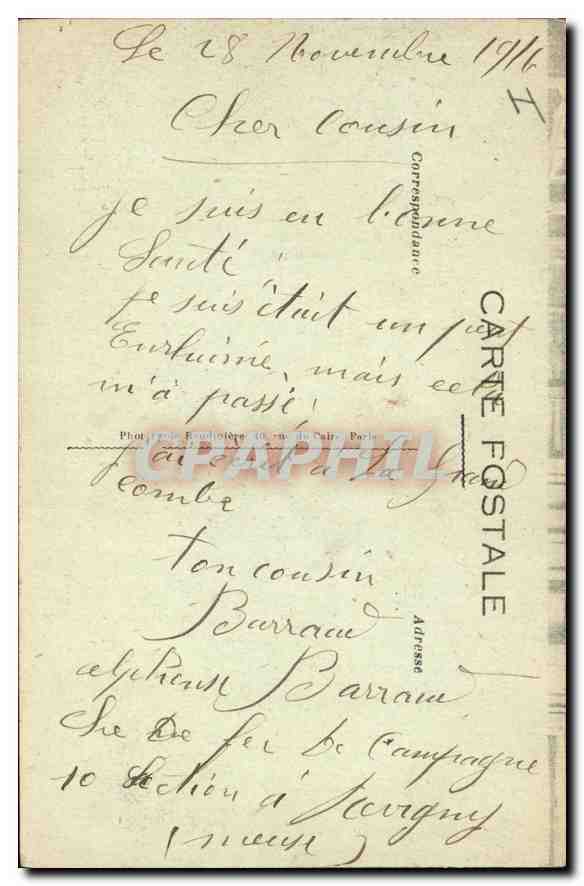 Le 28 Novembre 1916
I
Cher Cousin
Correspondance
Je suis en bonne
Santé
je suis était un peut
Enrhumé, mais cela
m'a passé!
Phototypie Baudinière, 40, rue du Caire, Paris
CPAPHIL
j'ai écrit à La Grand
combe
CARTE POSTALE
ton cousin
Barraud
Adresse
alphonse Barraud
Che De fer de Campagne
10 Section à
(meuse)